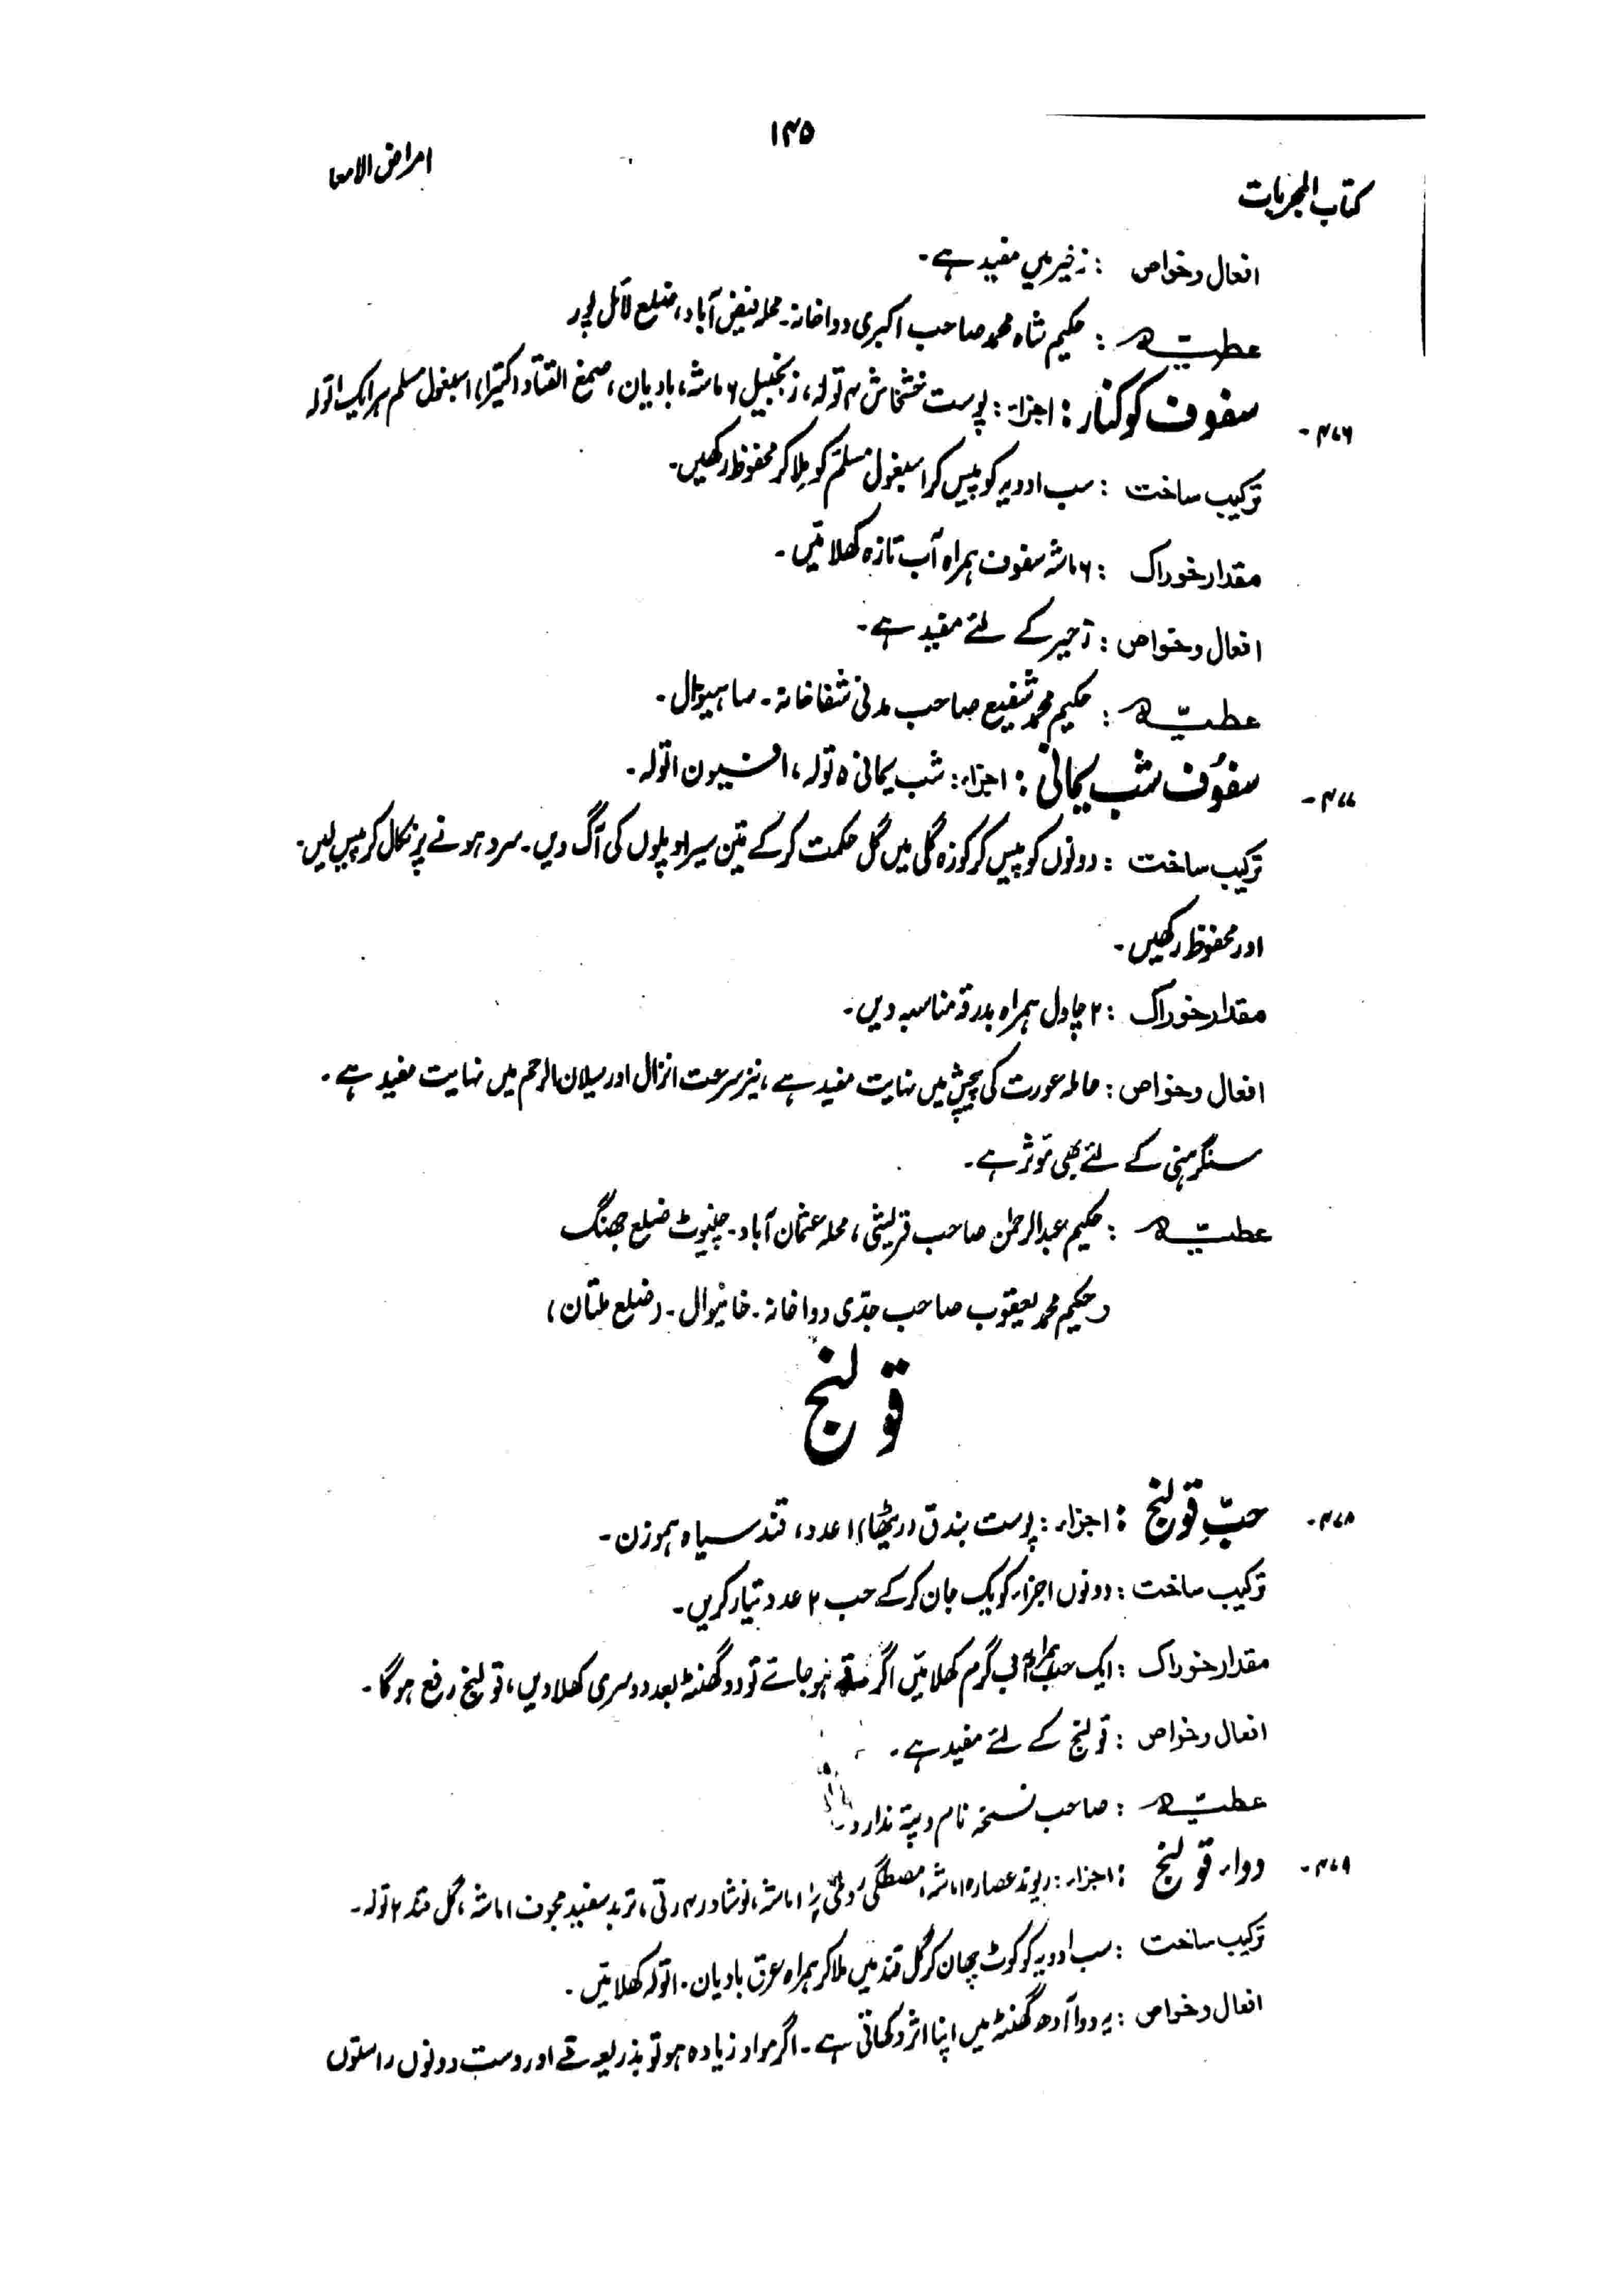 ۱۴۵
امراض الامعا
کتاب المجربات
افعال وخواص : زخیر میں مفید ہے۔
عطیہ : حکیم شاہ محمد صاحب اکبری دواخانہ۔ محلہ فیض آباد، ضلع لائل پور
۴۷۶۔ سفوف کوکنار : اجزاء : پوست خشخاش ۴ تولہ، زنجبیل ۶ ماشہ، بادیان، صمغ القتاد (کتیرا)، اسبغول مسلم ہر ایک ۱ تولہ
ترکیب ساخت : سب ادویہ کو پیس کر اسبغول مسلّم کو ملا کر محفوظ رکھیں۔
مقدار خوراک : ۶ ماشہ سفوف ہمراہ آب تازہ کھلائیں۔
افعال وخواص : زحیر کے لئے مفید ہے۔
عطیّہ : حکیم محمد شفیع صاحب مدنی شفاخانہ۔ ساہیوال۔
۴۷۷۔ سفُوف شب یمانی : اجزاء : شب یمانی ۵ تولہ، افیون ۱ تولہ۔
ترکیب ساخت : دونوں کو پیس کر کوزہ گلی میں گل حکمت کر کے تین سیر اوپلوں کی آگ دیں۔ سرد ہونے پر نکال کر پیس لیں۔
اور محفوظ رکھیں۔
مقدار خوراک : ۲ چاول ہمراہ بدرقہ مناسبہ دیں۔
افعال وخواص : حاملہ عورت کی پیچش میں نہایت مفید ہے، نیز سرعت انزال اور سیلان الرحم میں نہایت مفید ہے۔
سنگرہنی کے لئے بھی مؤثر ہے۔
عطیّہ : حکیم عبدالرحمٰن صاحب قریشی، محلہ عثمان آباد۔ چنیوٹ ضلع جھنگ
و حکیم محمد یعقوب صاحب جدّی دواخانہ۔ خانیوال۔ (ضلع ملتان)
قولنج
۴۷۸۔ حبِّ قولنج : اجزاء : پوست بندق (ریٹھا) ۱ عدد، قند سیاہ ہموزن۔
ترکیب ساخت : دونوں اجزاء کو یک جان کر کے حب ۲ عدد تیار کریں۔
مقدار خوراک : ایک حب ہمراہ آب گرم کھلائیں اگر قے ہو جائے تو دو گھنٹہ بعد دوسری کھلا دیں، قولنج رفع ہوگا۔
افعال وخواص : قولنج کے لئے مفید ہے۔
عطیّہ : صاحب نسخہ نام و پتہ ندارد۔
۴۷۹۔ دواء قولنج : اجزاء : ریوند عصارہ ۱ ماشہ، مصطگی رومی ۱ ماشہ، نوشادر ۴ رتی، تربد سفید مجوف ۱ ماشہ، گل قند ۲ تولہ۔
ترکیب ساخت : سب ادویہ کو کوٹ چھان کر گل قند میں ملا کر ہمراہ عرق بادیان ۱۰ تولہ کھلائیں۔
افعال وخواص : یہ دوا آدھ گھنٹہ میں اپنا اثر دکھاتی ہے۔ اگر مواد زیادہ ہو تو بذریعہ قے اور دست دونوں راستوں